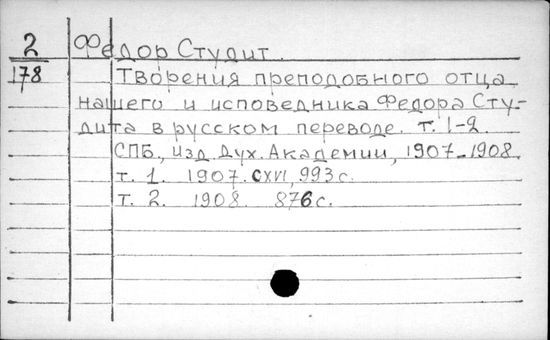 2 Федор Студит.
178 Творения преподобного отца
нашего и исповедника Федора Сту-
дита в русском переводе. т. 1-2.
СПБ., изд. Дух. Академии, 1907-1908.
т. 1. 1907. CXVI, 993 с.
т. 2. 1908. 876 с.